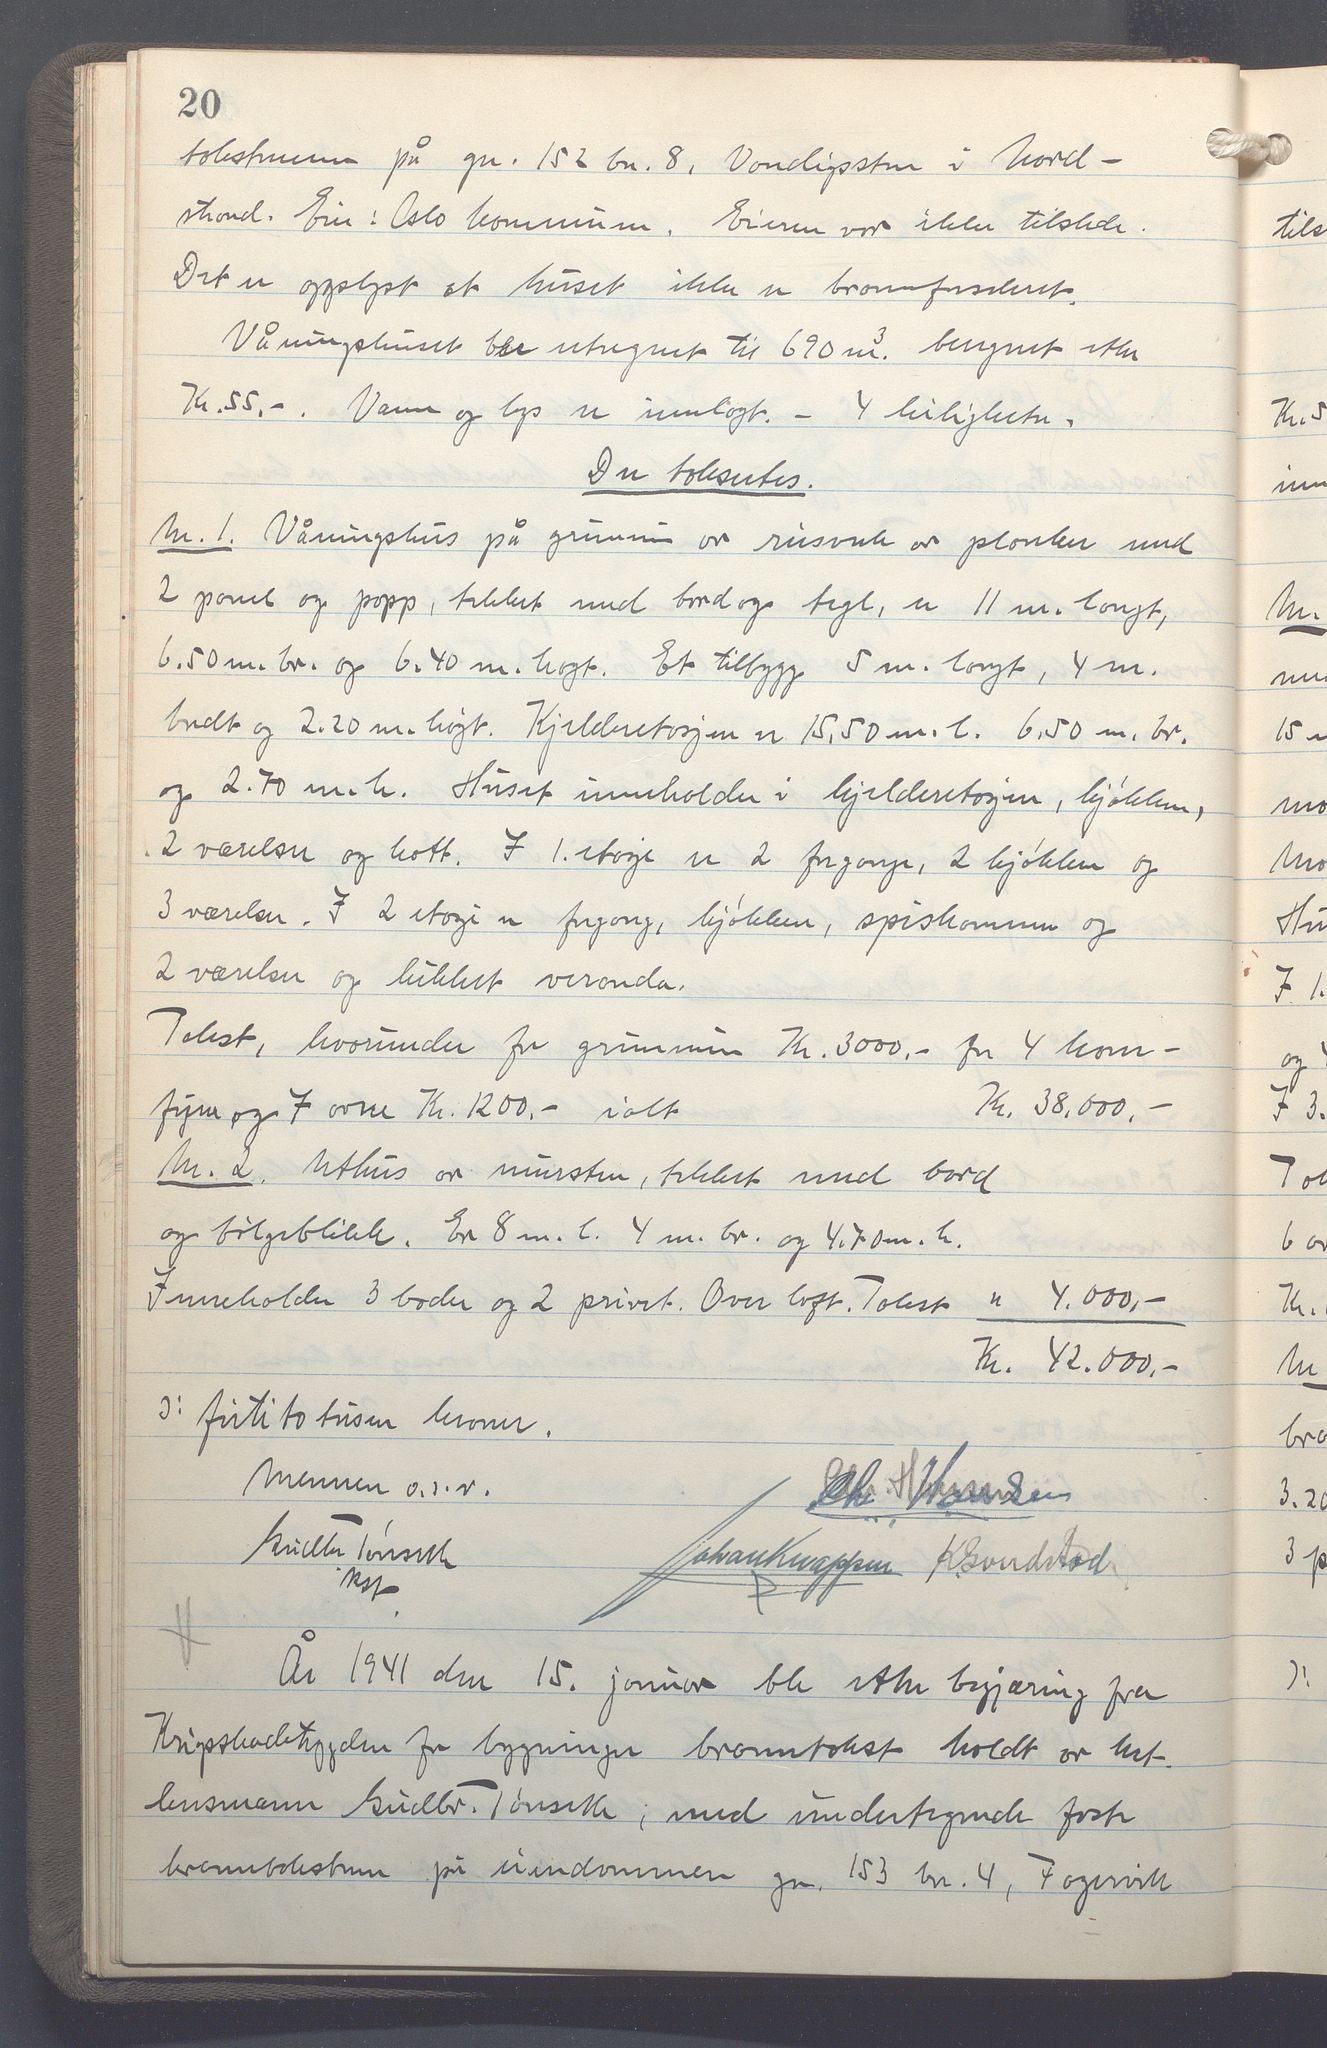 20
takstmenn på gn. 152 bn. 8, i Nord-
strand. Eier: Oslo kommune. Eieren var ikke tilstede.
Det er opplyst at huset ikke er brannforsikret.
Våningshuset ble utregnet til 690 m³. beregnet etter
Kr. 55.-. Vann og lys er innlagt. - 4 leiligheter.
Der takseres.
Nr. 1. Våningshus på grunnmur av reisverk av planker med
2 panel og papp, tekket med bord og tegl, er 11 m. langt,
6.50 m. br. og 6.40 m. høgt. Et tilbygg 5 m. langt, 4 m.
bredt og 2.20 m. høgt. Kjelderetasjen er 15,50 m. l. 6,50 m. br.
og 2.70 m. h. Huset inneholder i kjelderetasjen, kjøkken,
2 værelser og kott. I 1. etasje er 2 forganger, 2 kjøkken og
3 værelser. I 2 etasje er forgang, kjøkken, spiskammer og
2 værelser og lukket veranda.
Takst, hvorunder for grunnmur Kr. 3000.- for 4 kom-
fyrer og 7 ovner Kr. 1200.- ialt Kr. 38.000.-
Nr. 2. Uthus av murstein, tekket med bord
og bølgeblikk. Er 8 m. l. 4 m. br. og 4.70 m. h.
Inneholder 3 boder og 2 privet. Over loft. Takst " 4.000.-
Kr. 42.000.-
ɔ: førtito tusen kroner.
Mennen o.s.v.
Chr. Hansen
Gudbr. Tønseth
Johan Knappen
År 1941 den 15. januar ble etter begjæring fra
Krigsskadetrygden for bygninger branntakst holdt av lst.
lensmann Gudbr. Tønseth, med undertegnede faste
branntakstmenn på eiendommen gn. 153 bn. 4, Fagervik
tils
Kr. 5
inn
Nr.
15 m
mo
Hu
I 1.
og 4
I 3.
Tak
6 ov
Kr.
Nr
bra
3.20
3 p
ɔ: